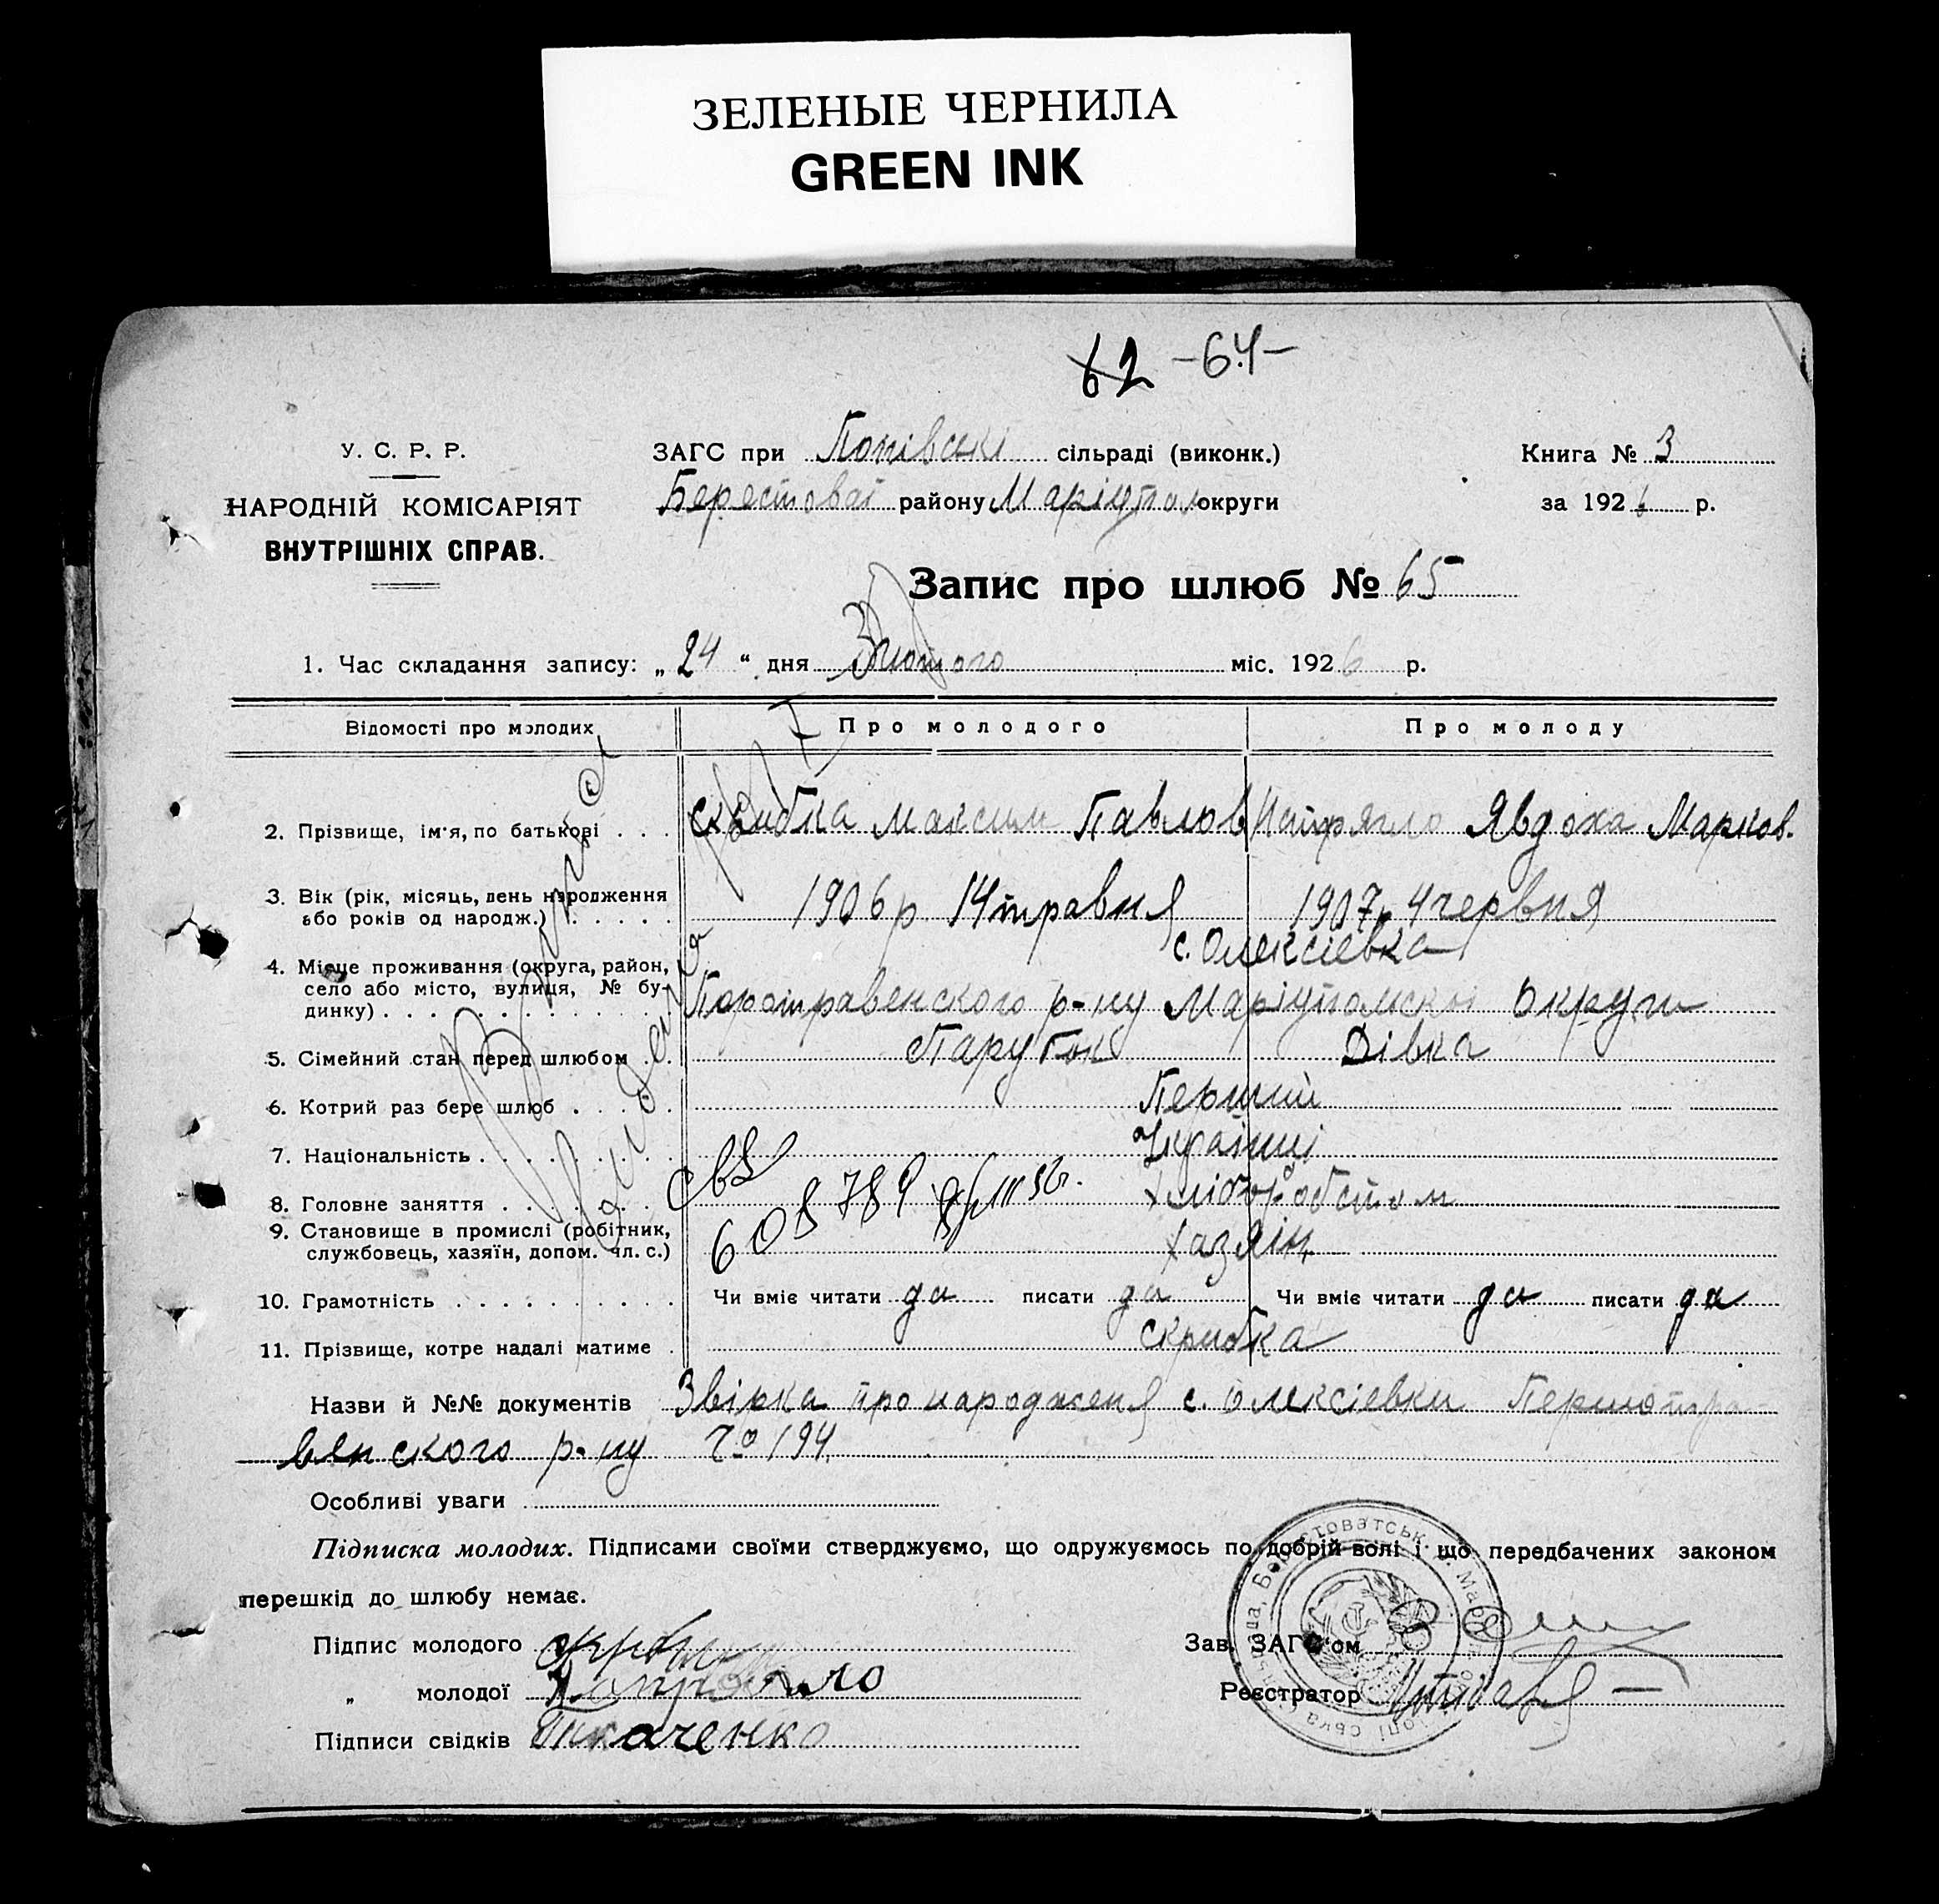 ЗЕЛЕНЫЕ ЧЕРНИЛА
GREEN INK
62 -64-
У. С. Р. Р.
НАРОДНІЙ КОМІСАРІЯТ
ВНУТРІШНІХ СПРАВ.
ЗАГС при Попівскі сільраді (виконк.)
Берестовоі району Маріупол округи
Книга № 3
за 1926 р.
Запис про шлюб № 65
1. Час складання запису: „24“ дня Лютого міс. 1926 р.
Відомості про молодих Про молодого Про молоду
2. Прізвище, ім'я, по батькові . . . Скрибка Максим Павлов Явдоха Марков.
3. Вік (рік, місяць, день народження
або років од народж.) . . . . . 1906 р 14 травня 1907 р 4 червня
с. Олексіевка
4. Місце проживання (округа, район,
село або місто, вулиця, № бу-
динку) . . . . р-ну Маріупольскоі Округи
5. Сімейний стан перед шлюбом . . Парубок Дівка
6. Котрий раз бере шлюб . . . . . Перший
7. Національність . . . . . Українці
8. Головне заняття . . . . . хліборобством
9. Становище в промислі (робітник,
службовець, хазяїн, допом. чл. с.) хазяін
608789
10. Грамотність . . . . . Чи вміє читати да писати да Чи вміє читати да писати да
11. Прізвище, котре надалі матиме . скрибка
Назви й №№ документів Звірка про народженя с. Олексіевки Першотра-
венского р-ну № 194
Особливі уваги
Підписка молодих. Підписами своїми стверджуємо, що одружуємось по добрій волі і що передбачених законом
перешкід до шлюбу немає.
Підпис молодого
„ молодої
Підписи свідків Ткаченко
Зав. ЗАГС'ом
Реєстратор